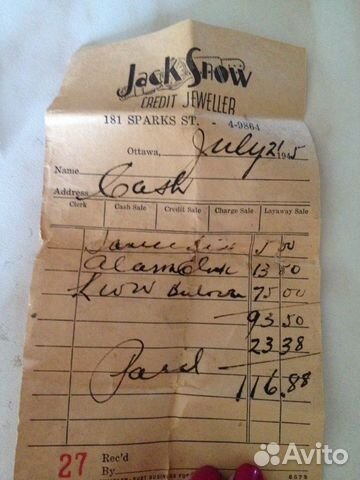 Jack Snow
CREDIT JEWELLER
181 SPARKS ST. 4-9864
Ottawa, July 21
Name
Address Cash
Clerk Cash Sale Credit Sale Charge Sale Layaway Sale
5.00
Alarm Clock 13.50
Bulova 75.00
93.50
23.38
Paid 116.88
27 Rec'd
By
Avito